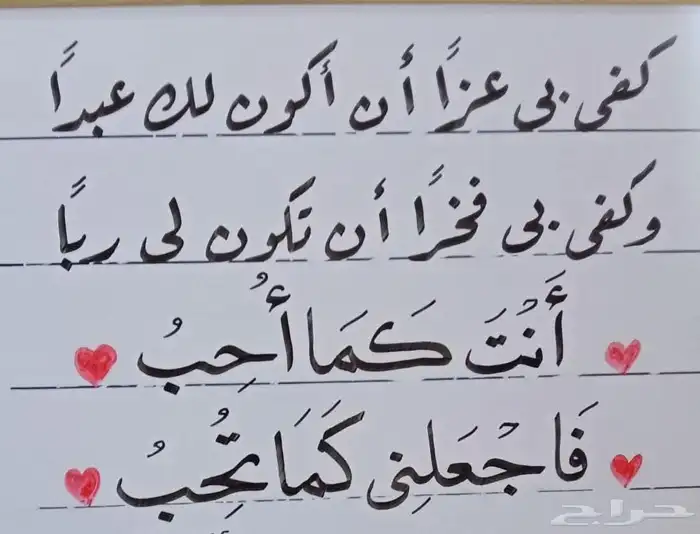 كفى بي عزًا أن أكون لك عبدًا
وكفى بي فخرًا أن تكون لي ربًا
أَنْتَ كَمَا أُحِبُ
فَاجْعَلنِي كَمَا تُحِبُ
حراج